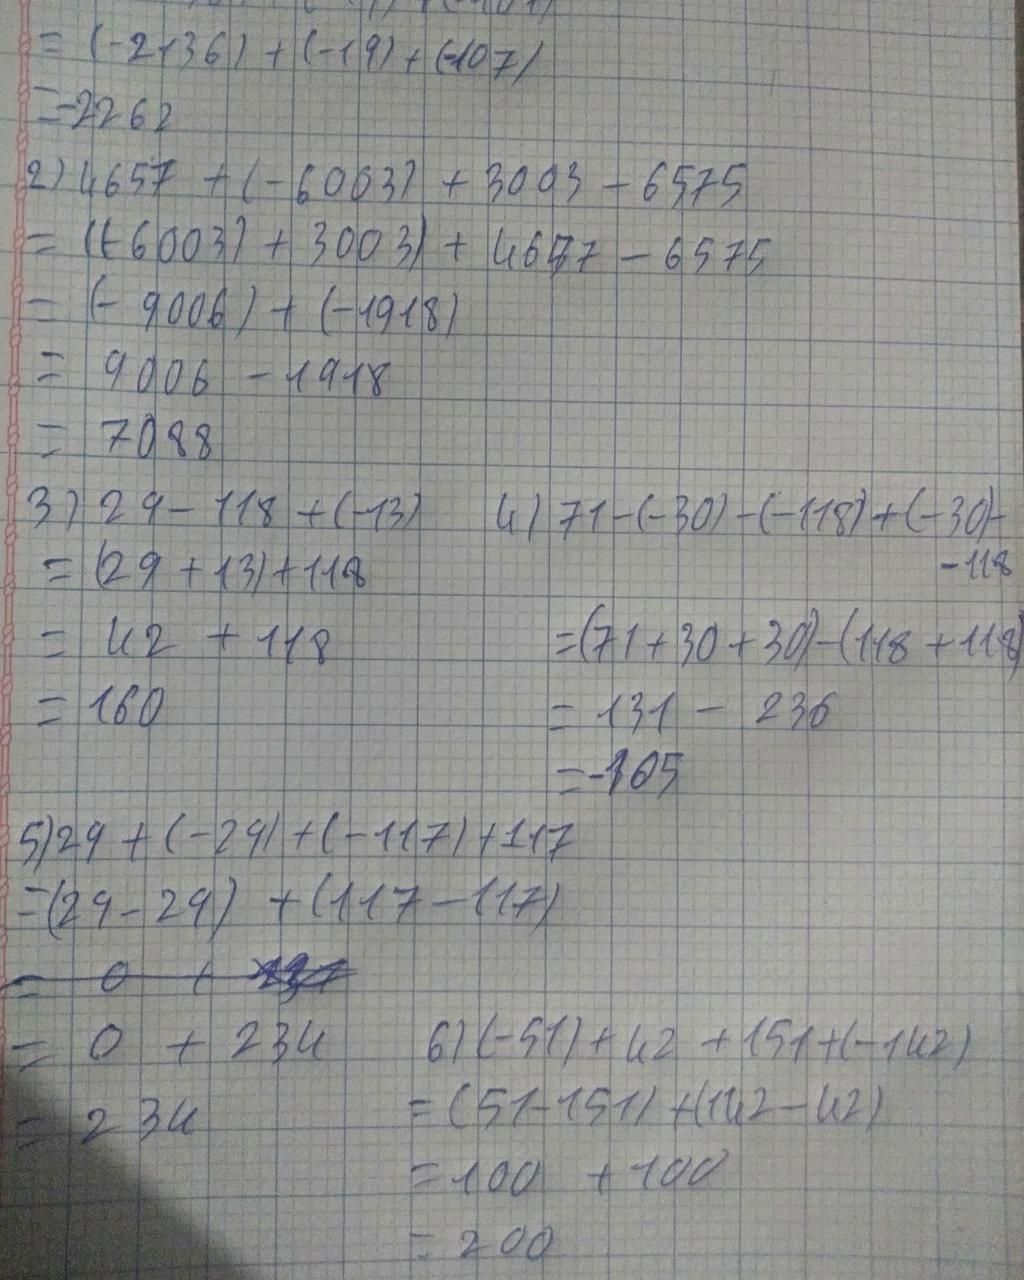 = (-2136) + (-19) + (-107)
= -2262
2) 4657 + (-6003) + 3003 - 6575
= ((-6003) + 3003) + 4657 - 6575
= (-9006) + (-1918)
= 9006 - 1918
= 7088
3) 29 - 118 + (-13)
= (29 + 13) + 118
= 42 + 118
= 160
4) 71 - (-30) - (-118) + (-30) -
- 118
= (71 + 30 + 30) - (118 + 118)
= 131 - 236
= -105
5) 29 + (-29) + (-117) + 117
= (29 - 29) + (117 - 117)
= 0 +
= 0 + 234
= 234
6) (-51) + 42 + 151 + (-142)
= (51 - 151) + (142 - 42)
= 100 + 100
= 200